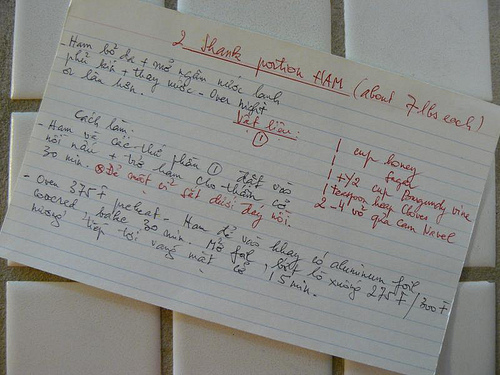 2 Shank portion HAM (about 7 lbs each)
- Ham bỏ da + mỡ ngâm nước lạnh
phủ kín + thay nước - Over night
or lâu hơn.
Vật liệu:
①
1 cup honey
1 " sugar
1 + 1/2 cup Burgundy wine
1 teaspoon hay Cloves
2 - 4 vỏ quả cam Navel
Cách làm:
- Ham và các thứ phần ① đặt vào
nồi nấu + trở ham cho thấm cỡ
30 min. ⊗ Để mặt có sắt dưới đáy nồi.
- Oven 375 F preheat - Ham để vào khay có aluminum foil
covered, bake 30 min. Mở foil, bớt lò xuống 275 F / 300 F
nướng tiếp tới vàng mặt cỡ 15 min.